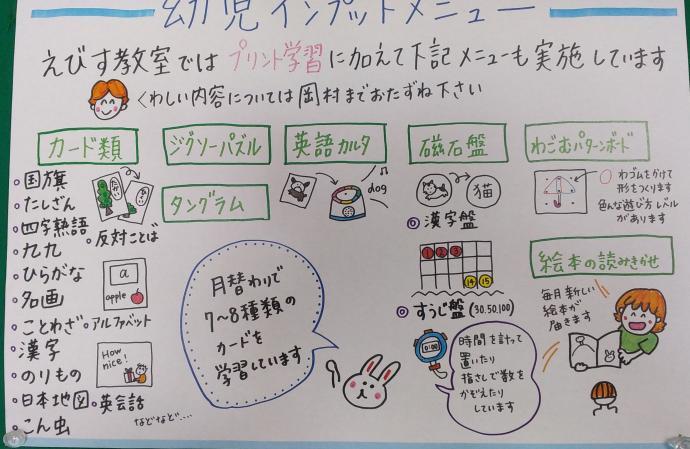 幼児インプットメニュー
えびす教室ではプリント学習に加えて下記メニューも実施しています
くわしい内容については岡村までおたずね下さい
カード類
国旗
たしざん
四字熟語
九九
ひらがな
名画
ことわざ
漢字
のりもの
日本地図
こん虫
反対ことば
a
apple
アルファベット
How
nice!
英会話
などなど....
ジグソーパズル
タングラム
月替わりで
7〜8種類の
カードを
学習しています
英語カルタ
dog
磁石盤
猫
漢字盤
1 2 3
14 15
すうじ盤(30.50.100)
0:00
時間を計って
置いたり
指さしで数を
かぞえたり
しています
わごむパターンボード
わゴムをかけて
形をつくります
色んな遊び方レベル
があります
絵本の読みきかせ
毎月新しい
絵本が
届きます